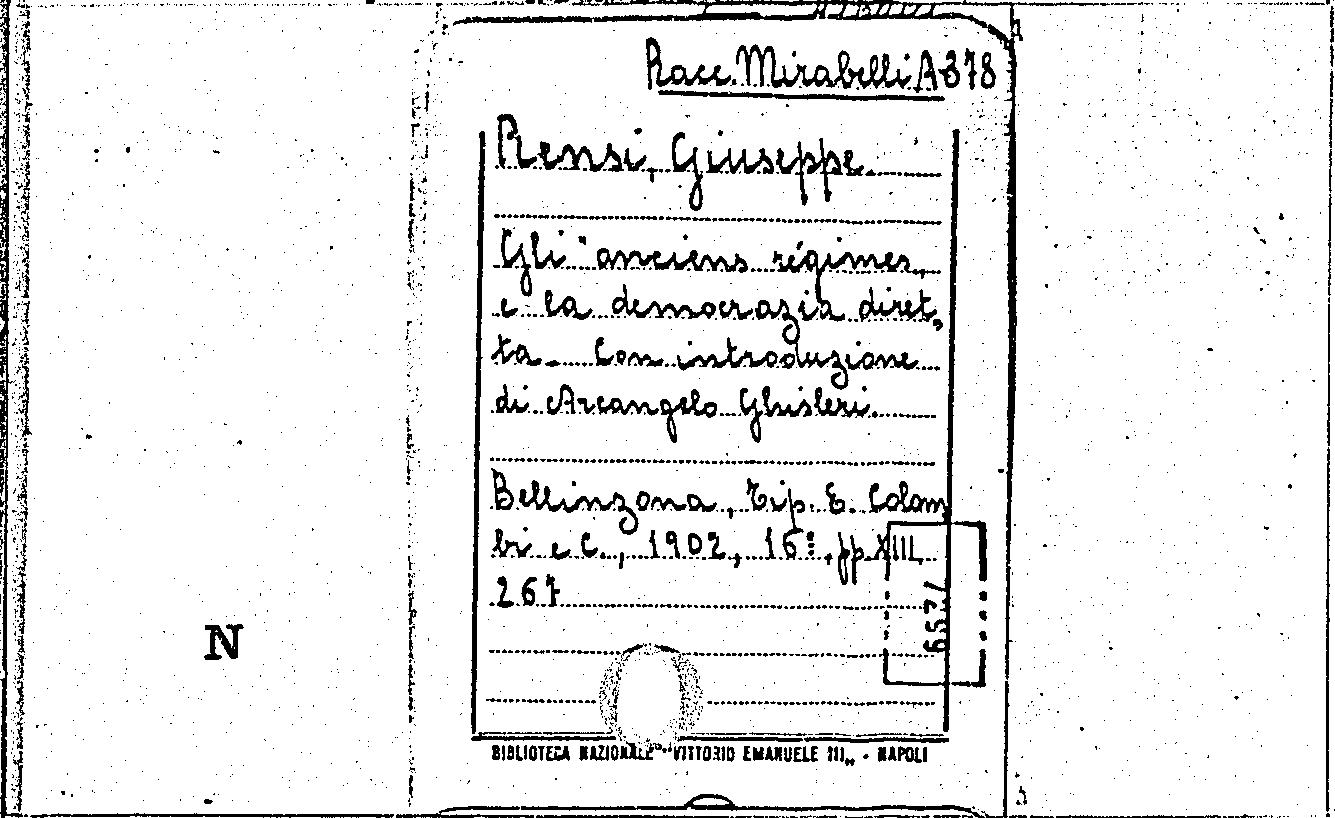 Racc. Mirabelli A 378
Rensi, Giuseppe.
Gli "anciens régimes„
e la democrazia diret„
ta. Con introduzione
di Arcangelo Ghisleri.
Bellinzona, Tip. E. Colom
bi e C., 1902, 16º, pp. XIII,
267
N
BIBLIOTECA NAZIONALE "VITTORIO EMANUELE III„ - NAPOLI